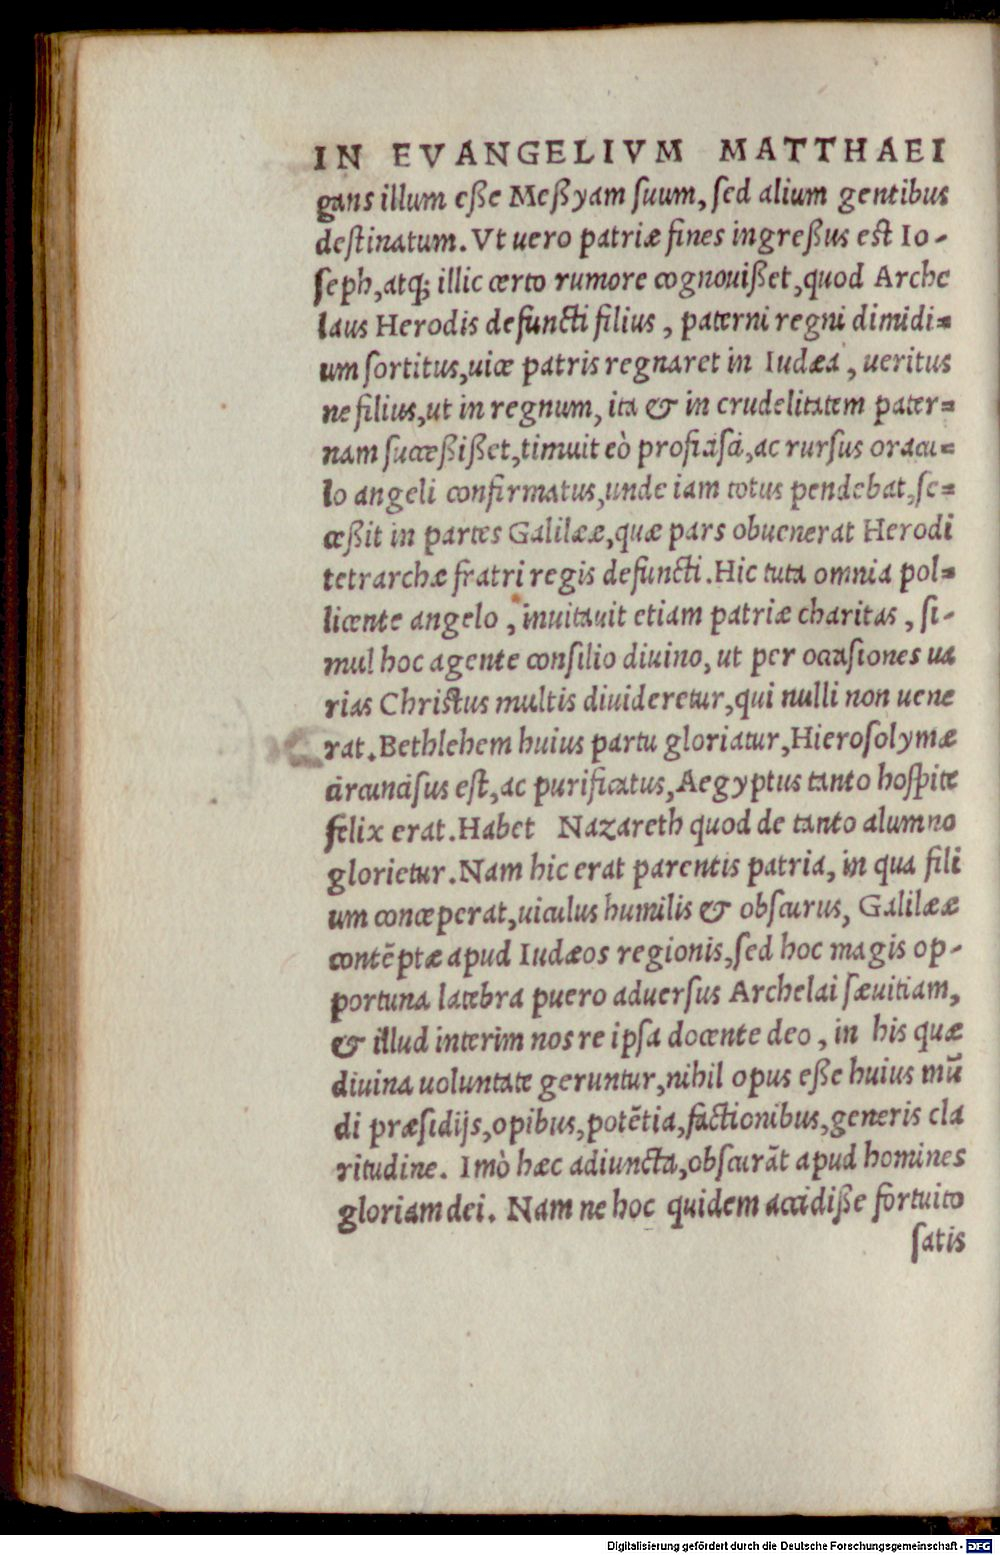 IN EVANGELIVM MATTHAEI
gans illum eße Meßyam suum, sed alium gentibus
destinatum. Vt uero patriæ fines ingreßus est Io-
seph, atq; illic certo rumore cognouißet, quod Arche
laus Herodis defuncti filius, paterni regni dimidi=
um sortitus, uice patris regnaret in Iudæa, ueritus
ne filius, ut in regnum, ita & in crudelitatem pater=
nam succeßißet, timuit eò proficisci, ac rursus oracu=
lo angeli confirmatus, unde iam totus pendebat, se=
ceßit in partes Galilææ, quæ pars obuenerat Herodi
tetrarchæ fratri regis defuncti. Hic tuta omnia pol=
licente angelo, inuitauit etiam patriæ charitas, si-
mul hoc agente consilio diuino, ut per occasiones ua
rias Christus multis diuideretur, qui nulli non uene
rat. Bethlehem huius partu gloriatur, Hierosolymæ
circuncisus est, ac purificatus, Aegyptus tanto hospite
felix erat. Habet Nazareth quod de tanto alumno
glorietur. Nam hic erat parentis patria, in qua fili
um conceperat, uiculus humilis & obscurus, Galilææ
contēptæ apud Iudæos regionis, sed hoc magis op-
portuna latebra puero aduersus Archelai sæuitiam,
& illud interim nos re ipsa docente deo, in his quæ
diuina uoluntate geruntur, nihil opus eße huius mū
di præsidijs, opibus, potētia, factionibus, generis cla
ritudine. Imò hæc adiuncta, obscurāt apud homines
gloriam dei. Nam ne hoc quidem accidiße fortuito
satis
Digitalisierung gefördert durch die Deutsche Forschungsgemeinschaft - DFG